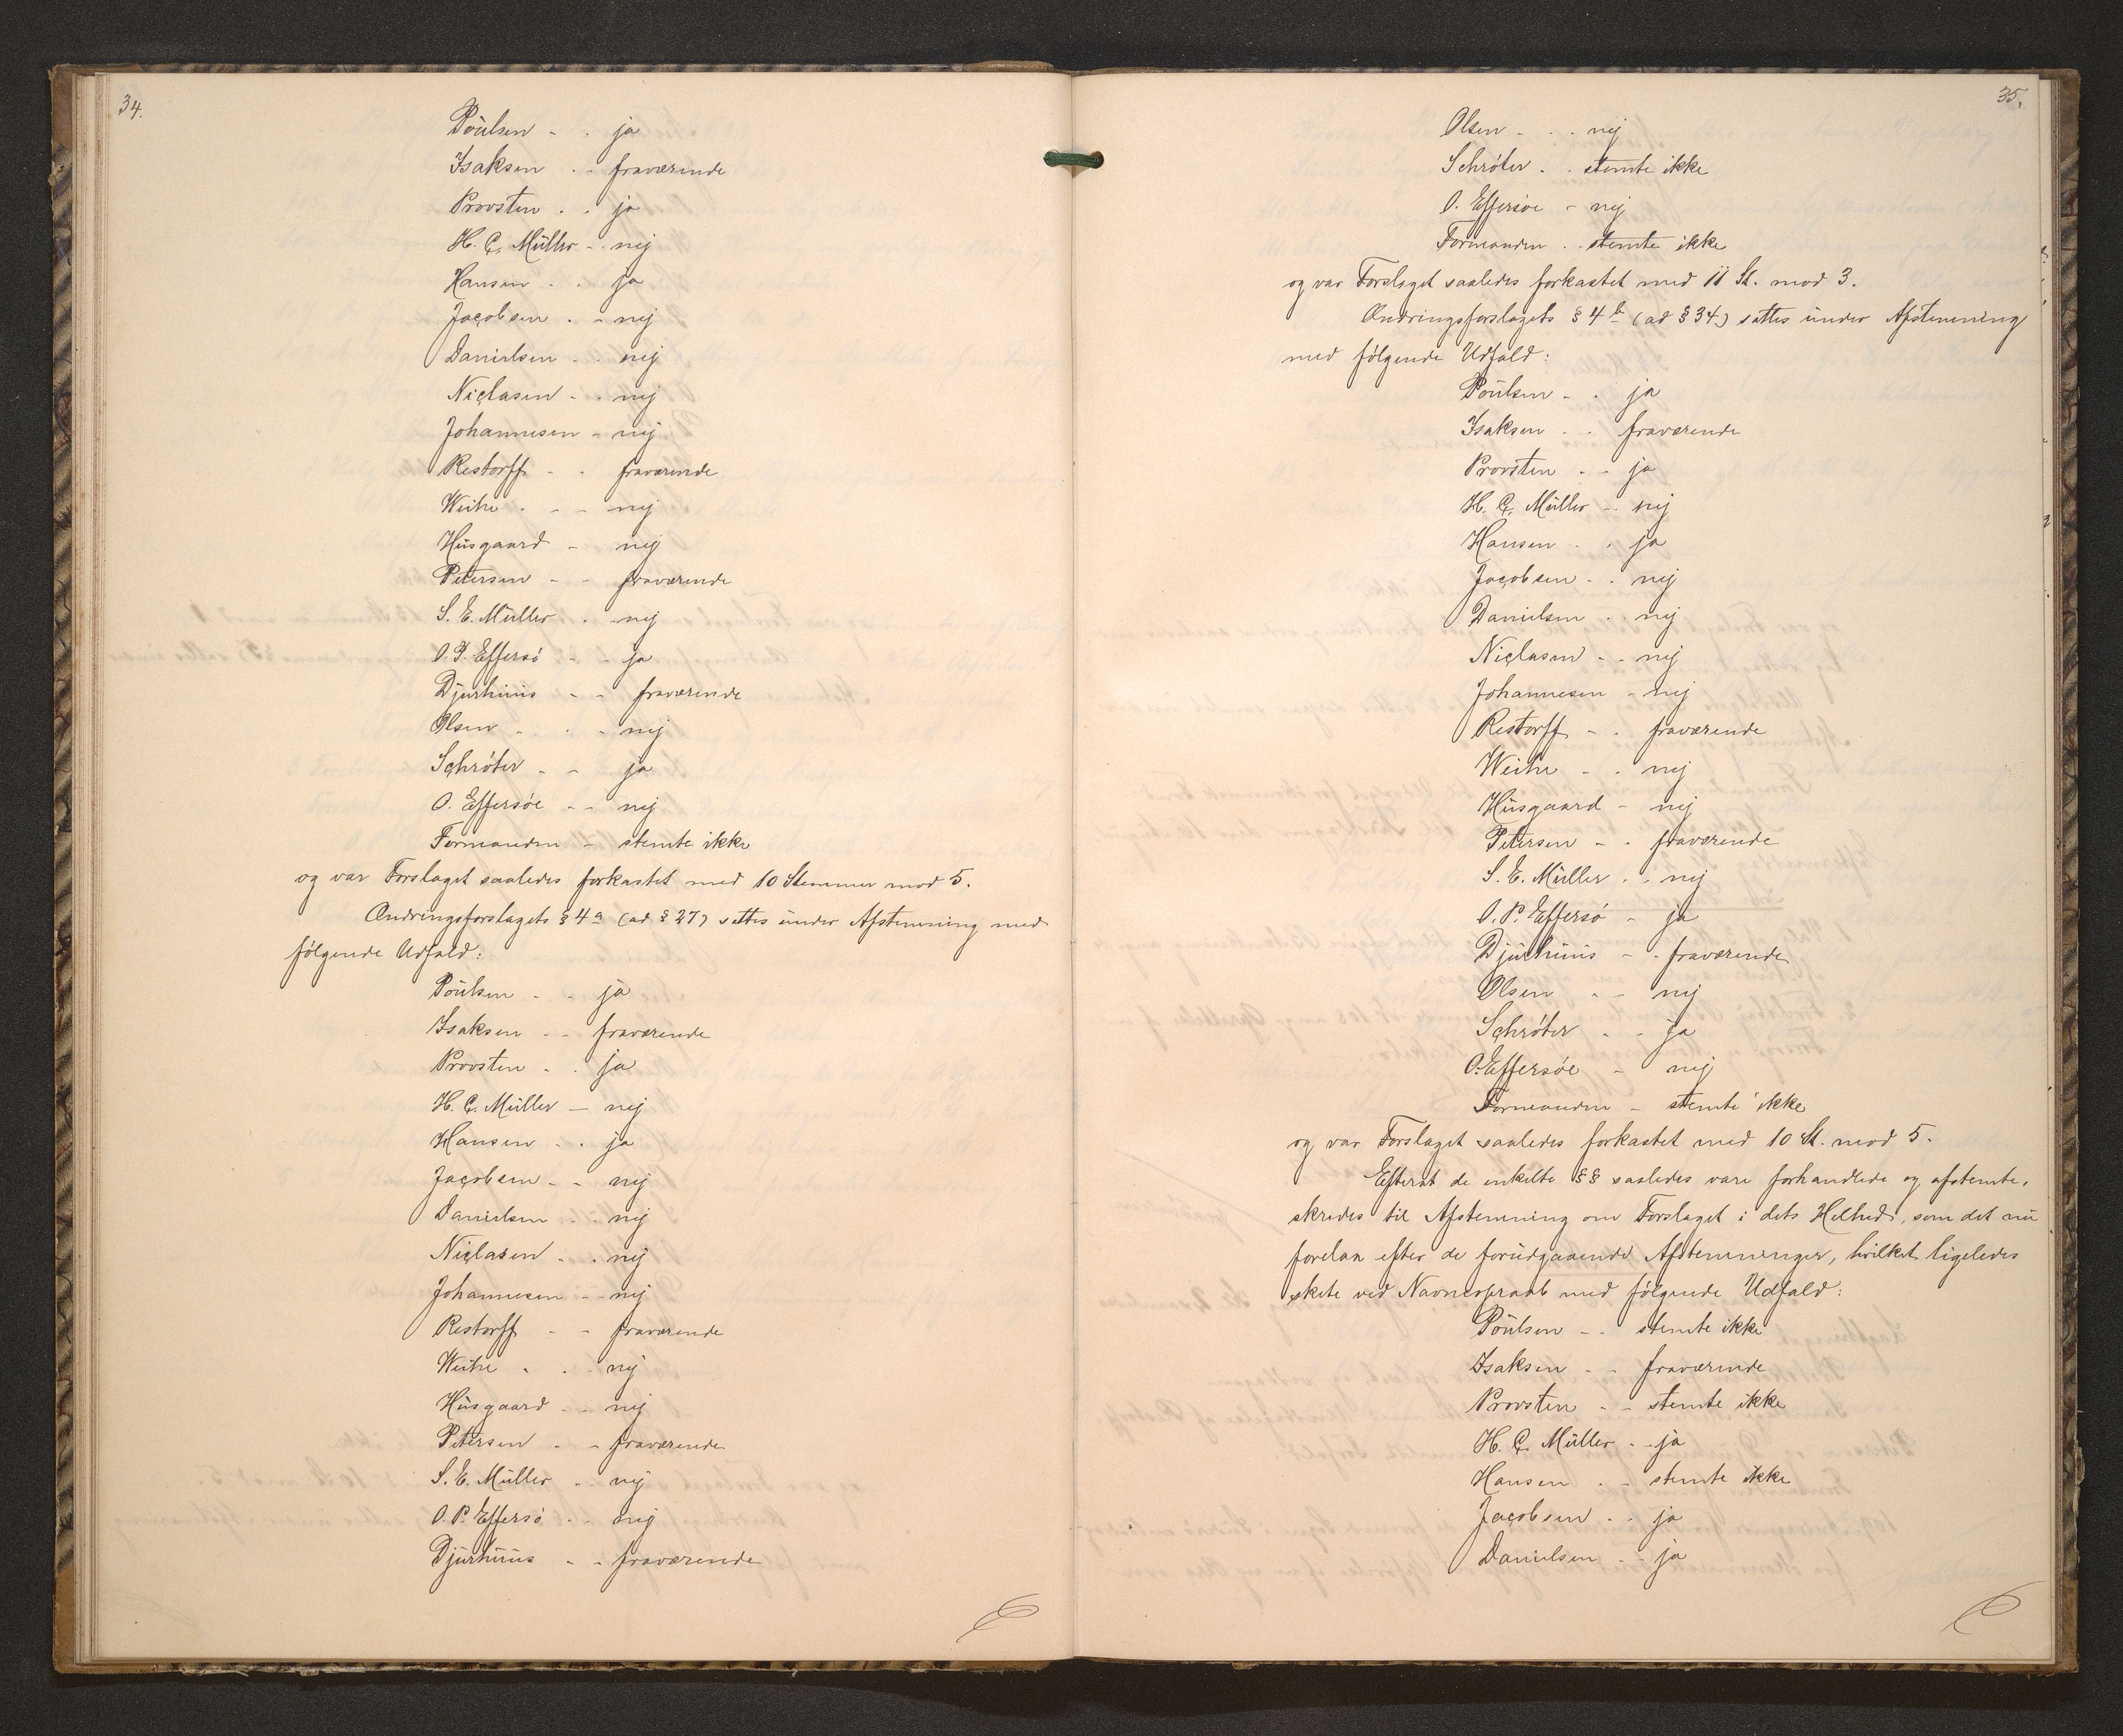 34.
Poulsen - - ja
Isaksen - - fraværende
Provsten - - ja
H. C. Müller - - nej
Hansen - - ja
Jacobsen - - nej
Danielsen - - nej
Niclasen - - nej
Johannesen - nej
Restorff - - fraværende
Weihe - - - nej
Husgaard - nej
Petersen - - fraværende
S. E. Müller - - nej
O. P. Effersö - - ja
Djurhuus - - fraværende
Olsen - - - nej
Schröter - - ja
O. Effersöe - - nej
Formanden - stemte ikke
og var Forslaget saaledes forkastet med 10 Stemmer mod 5.
Ændringsforslagets § 4a (ad § 27) sattes under Afstemning med
følgende Udfald:
Poulsen - - ja
Isaksen - - fraværende
Provsten - - ja
H. C. Müller - nej
Hansen - - ja
Jacobsen - - nej
Danielsen - - nej
Niclasen - - nej
Johannesen - - nej
Restorff - - fraværende
Weihe - - nej
Husgaard - - nej
Petersen - - fraværende
S. E. Müller - - nej
O. P. Effersö - - nej
Djurhuus - - fraværende
35.
Olsen - - - nej
Schröter - - stemte ikke
O. Effersöe - nej
Formanden - - stemte ikke
og var Forslaget saaledes forkastet med 11 St. mod 3.
Ændringsforslagets § 4b (ad § 34) sattes under Afstemning
med følgende Udfald:
Poulsen - - ja
Isaksen - - fraværende
Provsten - - ja
H. C. Müller - - nej
Hansen - - ja
Jacobsen - - nej
Danielsen - nej
Niclasen - - nej
Johannesen - nej
Restorff - - fraværende
Weihe - - nej
Husgaard - nej
Petersen - - fraværende
S. E. Müller - - nej
O. P. Effersö - ja
Djurhuus - - fraværende
Olsen - - nej
Schröter - - ja
O. Effersöe - nej
Formanden - stemte ikke
og var Forslaget saaledes forkastet med 10 St. mod 5.
Efterat de enkelte §§ saaledes vare forhandlede og afstemte,
skredes til Afstemning om Forslaget i dets Helhed, som det nu
forelaa efter de forudgaaende Afstemninger, hvilket ligeledes
skete ved Navneopraab med følgende Udfald:
Poulsen - - stemte ikke
Isaksen - - fraværende
Provsten - - stemte ikke
H. C. Müller - - ja
Hansen - - stemte ikke
Jacobsen - - ja
Danielsen - - ja